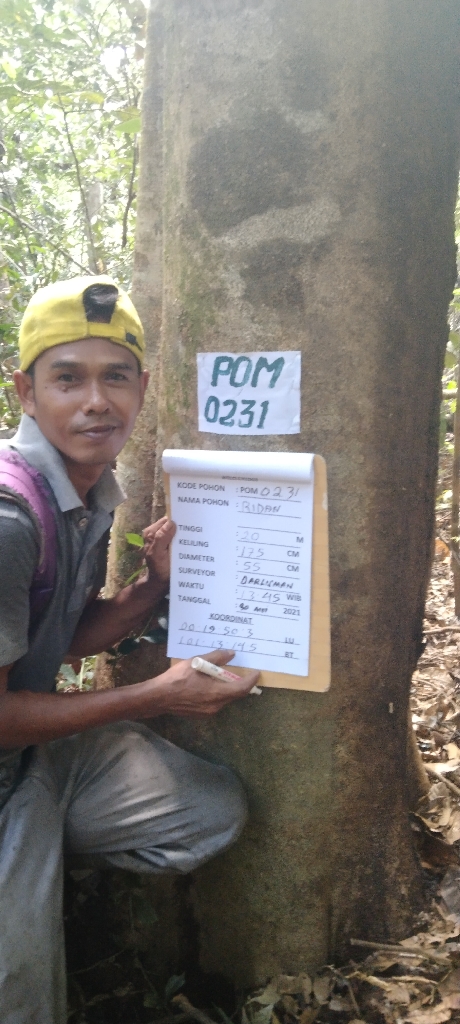 POM
0231
KODE POHON : POM 0231
NAMA POHON : RIDAN
TINGGI : 20 M
KELILING : 175 CM
DIAMETER : 55 CM
SURVEYOR : DARLISMAN
WAKTU : 13 45 WIB
TANGGAL : 30 2021
KOORDINAT
00 19 50 3 LU
101 13 BT